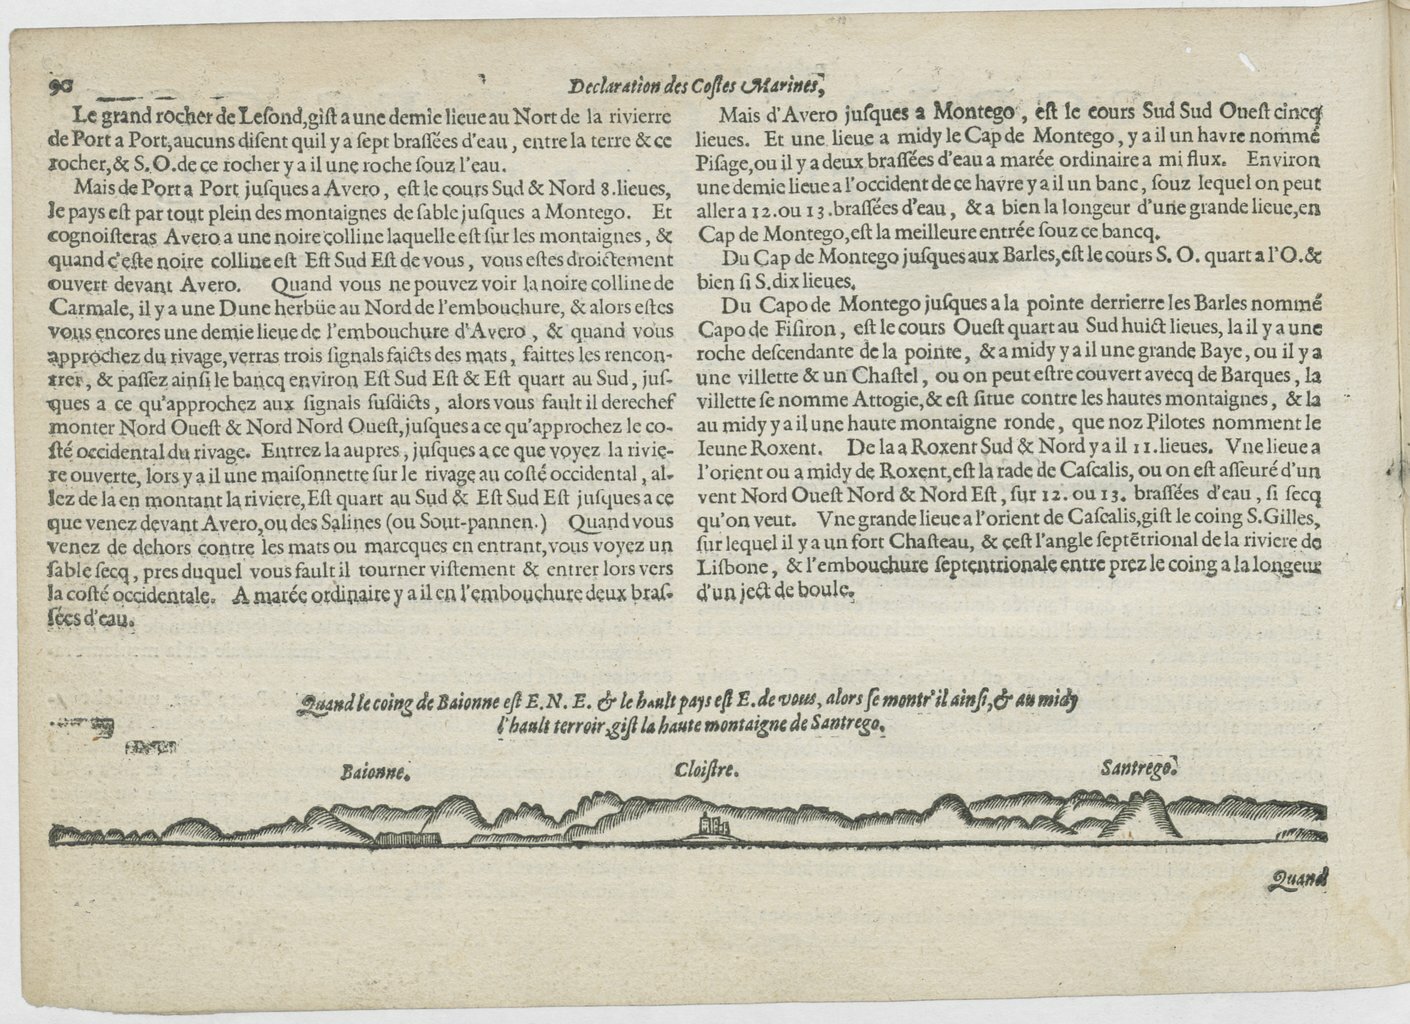 90
Declaration des Costes Marines,
Le grand rocher de Lesond, gist a une demie lieue au Nort de la rivierre
de Port a Port, aucuns disent quil y a sept brassées d'eau, entre la terre & ce
rocher, & S. O. de ce rocher y a il une roche souz l'eau.
Mais de Port a Port jusques a Avero, est le cours Sud & Nord 8. lieues,
le pays est par tout plein des montaignes de sable jusques a Montego. Et
cognoisteras Avero a une noire colline laquelle est sur les montaignes, &
quand c'este noire colline est Est Sud Est de vous, vous estes droictement
ouvert devant Avero. Quand vous ne pouvez voir la noire colline de
Carmale, il y a une Dune herbüe au Nord de l'embouchure, & alors estes
vous encores une demie lieue de l'embouchure d'Avero, & quand vous
approchez du rivage, verras trois signals faicts des mats, faittes les rencon-
trer, & passez ainsi le bancq environ Est Sud Est & Est quart au Sud, jus-
ques a ce qu'approchez aux signals susdicts, alors vous fault il derechef
monter Nord Ouest & Nord Nord Ouest, jusques a ce qu'approchez le co-
sté occidental du rivage. Entrez la aupres, jusques a ce que voyez la rivie-
re ouverte, lors y a il une maisonnette sur le rivage au costé occidental, al-
lez de la en montant la riviere, Est quart au Sud & Est Sud Est jusques a ce
que venez devant Avero, ou des Salines (ou Sout-pannen.) Quand vous
venez de dehors contre les mats ou marcques en entrant, vous voyez un
sable secq, pres duquel vous fault il tourner vistement & entrer lors vers
la costé occidentale. A marée ordinaire y a il en l'embouchure deux bras-
sées d'eau.
Mais d'Avero jusques a Montego, est le cours Sud Sud Ouest cincq
lieues. Et une lieue a midy le Cap de Montego, y a il un havre nommé
Pisage, ou il y a deux brassées d'eau a marée ordinaire a mi flux. Environ
une demie lieue a l'occident de ce havre y a il un banc, souz lequel on peut
aller a 12. ou 13. brassées d'eau, & a bien la longeur d'une grande lieue, en
Cap de Montego, est la meilleure entrée souz ce bancq.
Du Cap de Montego jusques aux Barles, est le cours S. O. quart a l'O. &
bien si S. dix lieues.
Du Capo de Montego jusques a la pointe derrierre les Barles nommé
Capo de Fisiron, est le cours Ouest quart au Sud huict lieues, la il y a une
roche descendante de la pointe, & a midy y a il une grande Baye, ou il y a
une villette & un Chastel, ou on peut estre couvert avecq de Barques, la
villette se nomme Attogie, & est situe contre les hautes montaignes, & la
au midy y a il une haute montaigne ronde, que noz Pilotes nomment le
Ieune Roxent. De la a Roxent Sud & Nord y a il 11. lieues. Vne lieue a
l'orient ou a midy de Roxent, est la rade de Cascalis, ou on est asseuré d'un
vent Nord Ouest Nord & Nord Est, sur 12. ou 13. brassées d'eau, si secq
qu'on veut. Vne grande lieue a l'orient de Cascalis, gist le coing S. Gilles,
sur lequel il y a un fort Chasteau, & cest l'angle septẽtrional de la riviere de
Lisbone, & l'embouchure septentrionale entre prez le coing a la longeur
d'un ject de boule.
Quand le coing de Baionne est E. N. E. & le hault pays est E. de vous, alors se montr'il ainsi, & au midy
l'hault terroir, gist la haute montaigne de Santrego.
Baionne.
Cloistre.
Santrego.
Quand